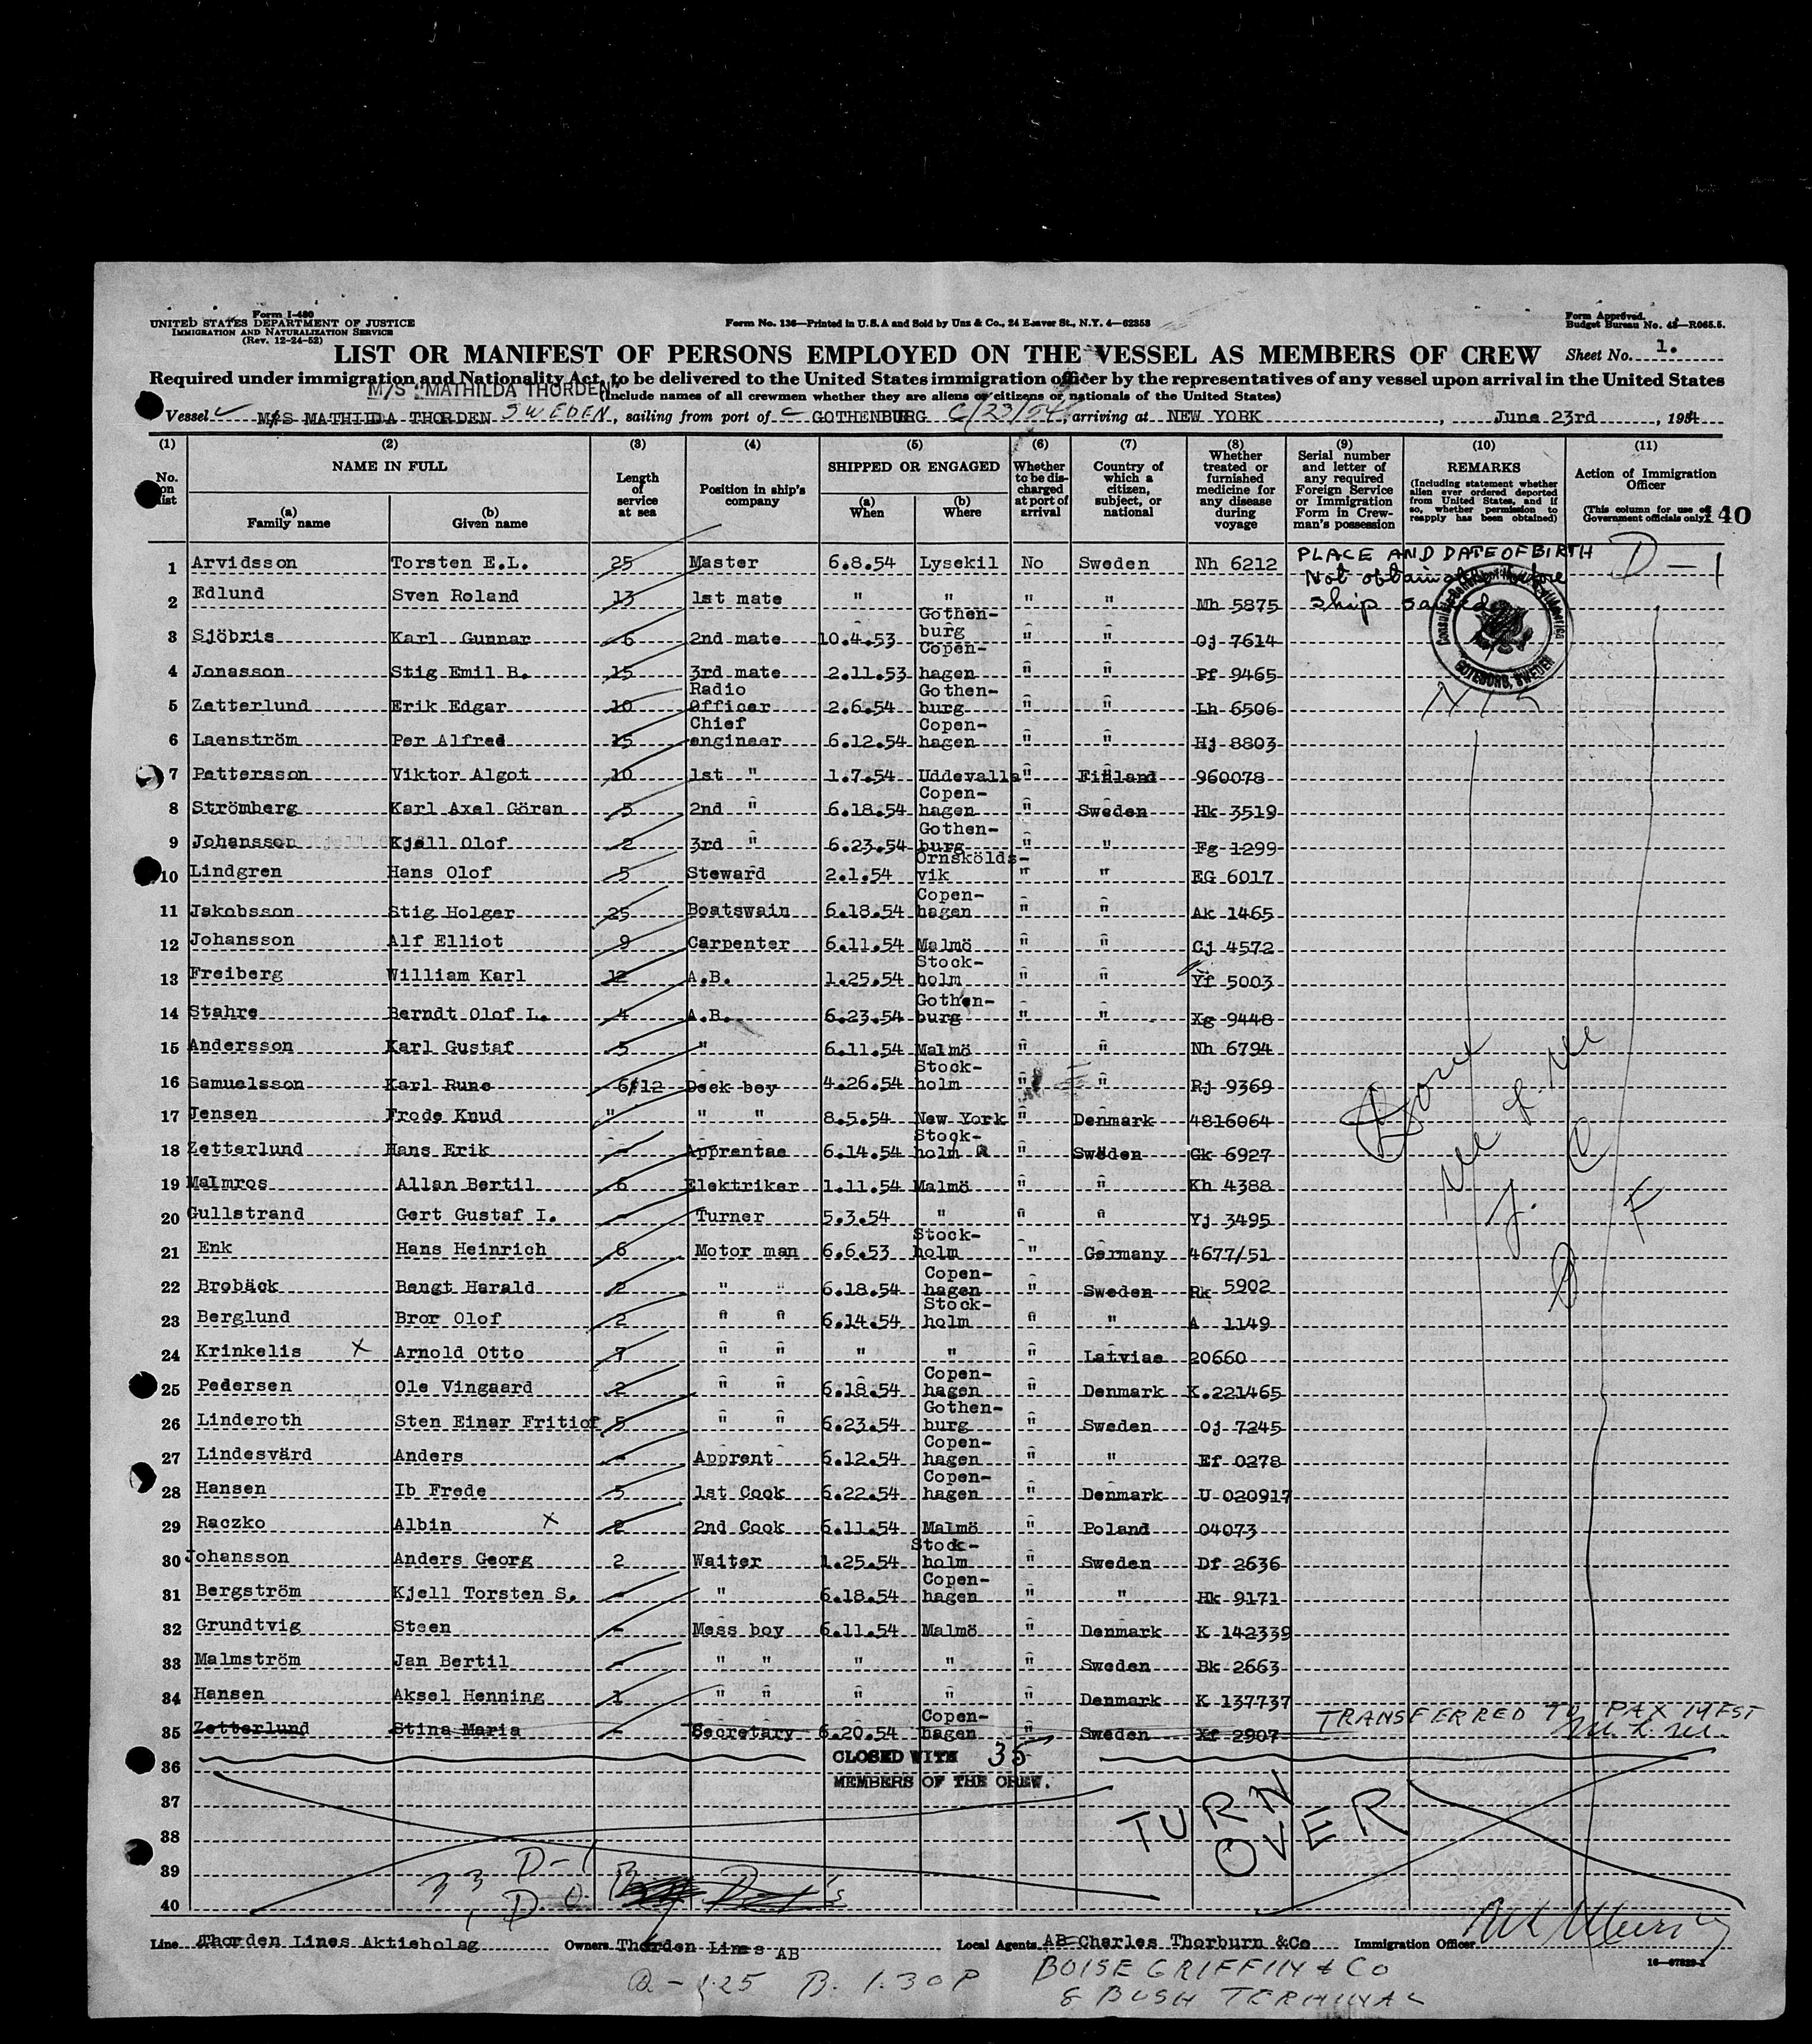 Form I-480
UNITED STATES DEPARTMENT OF JUSTICE
IMMIGRATION AND NATURALIZATION SERVICE
(Rev. 12-24-52)
Form No. 136—Printed in U.S.A and Sold by Unz & Co., 24 Beaver St., N.Y. 4—62353
Form Approved.
Budget Bureau No. 43—R065.5.
LIST OR MANIFEST OF PERSONS EMPLOYED ON THE VESSEL AS MEMBERS OF CREW
Sheet No. 1.
Required under immigration and Nationality Act, to be delivered to the United States immigration officer by the representatives of any vessel upon arrival in the United States
M/S "MATHILDA THORDEN"
(Include names of all crewmen whether they are aliens or citizens or nationals of the United States)
Vessel M/S MATHILDA THORDEN SWEDEN, sailing from port of GOTHENBURG 6/23/54, arriving at NEW YORK, June 23rd, 1954
(1) (2) (3) (4) (5) (6) (7) (8) (9) (10) (11)
No. on list
NAME IN FULL
(a) Family name
(b) Given name
Length of service at sea
Position in ship's company
SHIPPED OR ENGAGED
(a) When
(b) Where
Whether to be discharged at port of arrival
Country of which a citizen, subject, or national
Whether treated or furnished medicine for any disease during voyage
Serial number and letter of any required Foreign Service or Immigration Form in Crewman's possession
REMARKS
(Including statement whether alien ever ordered deported from United States, and if so, whether permission to reapply has been obtained)
Action of Immigration Officer
(This column for use of Government officials only)
140
1 Arvidsson Torsten E.L. 25 Master 6.8.54 Lysekil No Sweden Nh 6212
PLACE AND DATE OF BIRTH
Not obtainable before
ship sailed
D-1
2 Edlund Sven Roland 13 1st mate " " " " Mh 5875
3 Sjöbris Karl Gunnar 6 2nd mate 10.4.53 Gothenburg " " Oj 7614
4 Jonasson Stig Emil B. 15 3rd mate 2.11.53 Copenhagen " " Pf 9465
GÖTEBORG, SWEDEN
5 Zetterlund Erik Edgar 10 Radio Officer 2.6.54 Gothenburg " " Lh 6506
6 Laenström Per Alfred 15 Chief engineer 6.12.54 Copenhagen " " Hj 8803
7 Pettersson Viktor Algot 10 1st " 1.7.54 Uddevalla " Finland 960078
8 Strömberg Karl Axel Göran 5 2nd " 6.18.54 Copenhagen " Sweden Hk 3519
9 Johansson Kjell Olof 2 3rd " 6.23.54 Gothenburg " " Fg 1299
10 Lindgren Hans Olof 5 Steward 2.1.54 Örnsköldsvik " " EG 6017
11 Jakobsson Stig Holger 25 Boatswain 6.18.54 Copenhagen " " Ak 1465
12 Johansson Alf Elliot 9 Carpenter 6.11.54 Malmö " " Cj 4572
13 Freiberg William Karl 12 A.B. 1.25.54 Stockholm " " Yf 5003
14 Stahre Berndt Olof L. 4 A.B. 6.23.54 Gothenburg " " Xg 9448
15 Andersson Karl Gustaf 5 " 6.11.54 Malmö " " Nh 6794
16 Samuelsson Karl Rune 6/12 Deck boy 4.26.54 Stockholm " " Rj 9369
17 Jensen Frode Knud " " " 8.5.54 New York " Denmark 4816064
18 Zetterlund Hans Erik - Apprentae 6.14.54 Stockholm " Sweden Gk 6927
19 Malmros Allan Bertil 6 Elektriker 1.11.54 Malmö " " Kh 4388
20 Gullstrand Gert Gustaf I. - Turner 5.3.54 " " " Yj 3495
21 Enk Hans Heinrich 6 Motor man 6.6.53 Stockholm " Germany 4677/51
22 Brobäck Bengt Harald 2 " " 6.18.54 Copenhagen " Sweden Rk 5902
23 Berglund Bror Olof 2 " " 6.14.54 Stockholm " " A 1149
24 Krinkelis X Arnold Otto 7 " " " " " Latviae 20660
25 Pedersen Ole Vingaard 2 " " 6.18.54 Copenhagen " Denmark K.221465
26 Linderoth Sten Einar Fritiof 5 " " 6.23.54 Gothenburg " Sweden Oj 7245
27 Lindesvärd Anders - Apprent 6.12.54 Copenhagen " " Ef 0278
28 Hansen Ib Frede 5 1st Cook 6.22.54 Copenhagen " Denmark U 020917
29 Raczko Albin X 2 2nd Cook 6.11.54 Malmö " Poland 04073
30 Johansson Anders Georg 2 Waiter 1.25.54 Stockholm " Sweden Df 2636
31 Bergström Kjell Torsten S. - " 6.18.54 Copenhagen " " Hk 9171
32 Grundtvig Steen - Mess boy 6.11.54 Malmö " Denmark K 142339
33 Malmström Jan Bertil - " " " " " Sweden Bk 2663
34 Hansen Aksel Henning 1 " " " " " Denmark K 137737
35 Zetterlund Stina Maria - Secretary 6.20.54 Copenhagen " Sweden Xf 2907 TRANSFERRED TO PAX MFST
36 CLOSED WITH 35
MEMBERS OF THE CREW.
37
38 TURN OVER
39 33 D-1
40 1 D.O.
Line Thorden Lines Aktiebolag Owners Thorden Lines AB Local Agents AB Charles Thorburn &Co Immigration Officer
A-1.25 B. 1.30P BOISE GRIFFIN & CO
8 BUSH TERMINAL
16—67829-1